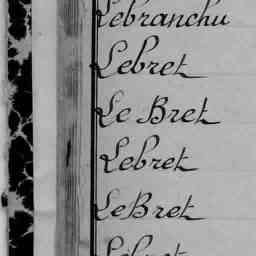 Lebranchu
Lebret
Le Bret
Lebret
LeBret
Lebret